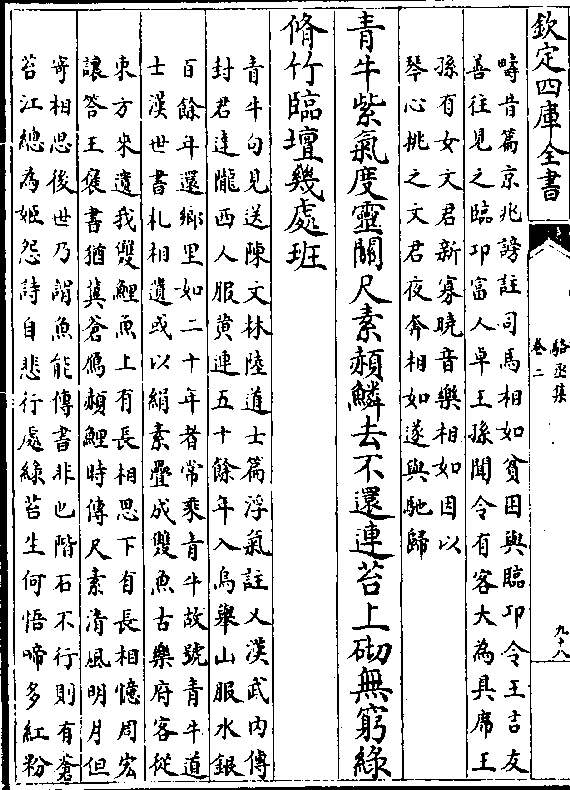 欽定四庫全書
駱丞集
卷二
九十八
疇昔篇京兆謗註司馬相如貧困與臨卭令王吉友
善往見之臨卭富人卓王孫聞令有客大為具席王
孫有女文君新寡曉音樂相如因以
琴心挑之文君夜奔相如遂與馳歸
青牛紫氣度靈關尺素赬鱗去不還連苔上砌無窮綠
脩竹臨壇幾處班
青牛句見送陳文林陸道士篇浮氣註又漢武内傳
封君達隴西人服黄連五十餘年入烏舉山服水銀
百餘年還鄉里如二十年者常乘青牛故號青牛道
士漢世書札相遺或以絹素疊成雙魚古樂府客從
東方來遺我雙鯉魚上有長相思下有長相憶周宏
讓答王襃書猶冀蒼鴈赬鯉時傳尺素清風明月但
寄相思後世乃謂魚能傳書非也階石不行則有蒼
苔江總為姬怨詩自悲行處綠苔生何悟啼多紅粉